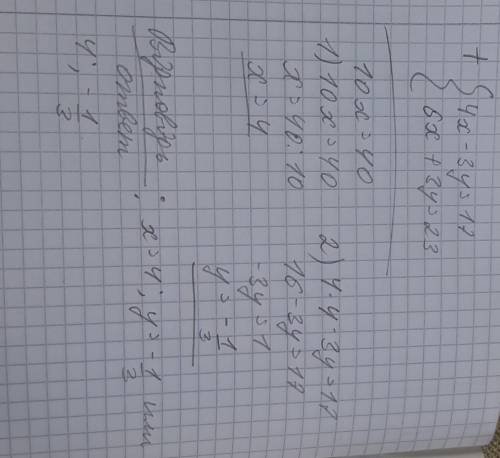 + { 4x - 3y = 17
{ 6x + 3y = 23
10x = 40
1) 10x = 40
x = 40 : 10
x = 4
2) 4·4 - 3y = 17
16 - 3y = 17
-3y = 1
y = -1/3
ответ : x = 4; y = -1/3 или
4; -1/3